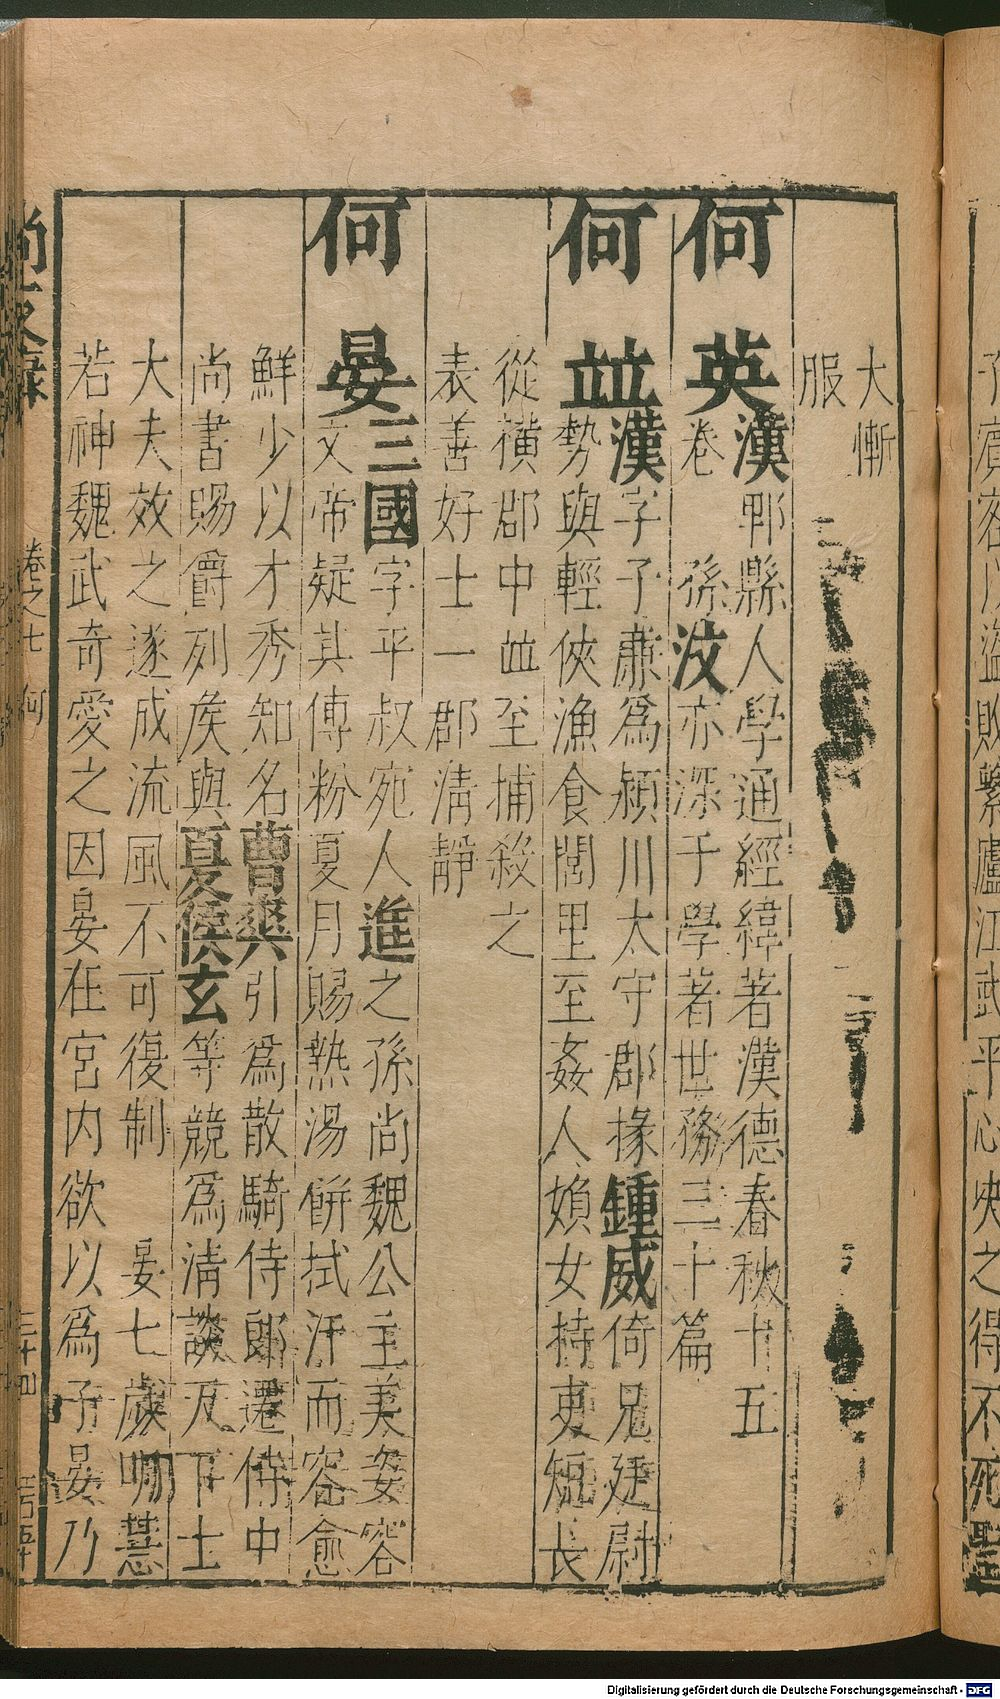 大慚
服
何英漢郫縣人學通經緯著漢德春秋十五
卷 孫汶亦深于學著世務三十篇
何並漢字子蘼爲潁川太守郡掾鍾威倚兄廷尉
勢與輕俠漁食閭里至姦人婦女持吏短長
從橫郡中並至捕殺之
表善好士一郡清靜
何晏三國字平叔宛人進之孫尚魏公主美姿容
文帝疑其傅粉夏月賜熱湯餅拭汗而容愈
鮮少以才秀知名曹爽引爲散騎侍郎遷侍中
尚書賜爵列矦與夏侯玄等競爲清談天下士
大夫效之遂成流風不可復制 晏七歲明慧
若神魏武奇愛之因晏在宮内欲以爲子晏乃
尚友錄 卷之七 何 三十四
Digitalisierung gefördert durch die Deutsche Forschungsgemeinschaft - DFG